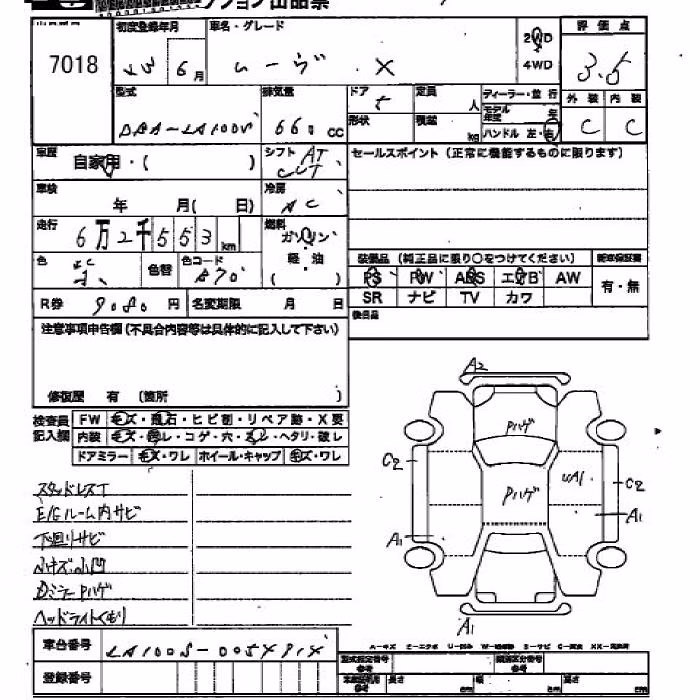 7018
初度登録年月
6月
車名・グレード
ムーヴ X
2WD
4WD
評価点
3.5
外装 内装
C C
型式
DBA-LA100S
排気量
660 cc
ドア
5
定員
人
形状
積載
kg
ディーラー・並行
モデル年式
年
ハンドル 左・右
車歴
自家用・( )
シフト AT
CVT
セールスポイント (正常に機能するものに限ります)
車検
年 月( 日)
冷房
AC
走行
6万2千553km
燃料
ガソリン
軽・油
( )
色
色替
色コード
装備品 (純正品に限り○をつけてください)
新車保証書
PS PW ABS エアB AW
有・無
SR ナビ TV カワ
後日品
R券 9080円
名変期限 月 日
注意事項申告欄 (不具合内容等は具体的に記入して下さい)
修復歴 有 (箇所 )
検査員
記入欄
FW キズ・飛石・ヒビ割・リペア跡・X要
内装 キズ・汚レ・コゲ・穴・スレ・ヘタリ・破レ
ドアミラー キズ・ワレ ホイール・キャップ キズ・ワレ
スタッドレスT
E/Gルーム内サビ
下回リサビ
小キズ・小凹
Dミラー Pハゲ
ヘッドライトくもり
A2
Pハゲ
C2
Pハゲ
UA1
C2
A1
A1
A1
車台番号
登録番号
A-キズ
型式指定番号
類別区分番号
長さ cm 幅 cm 高さ cm